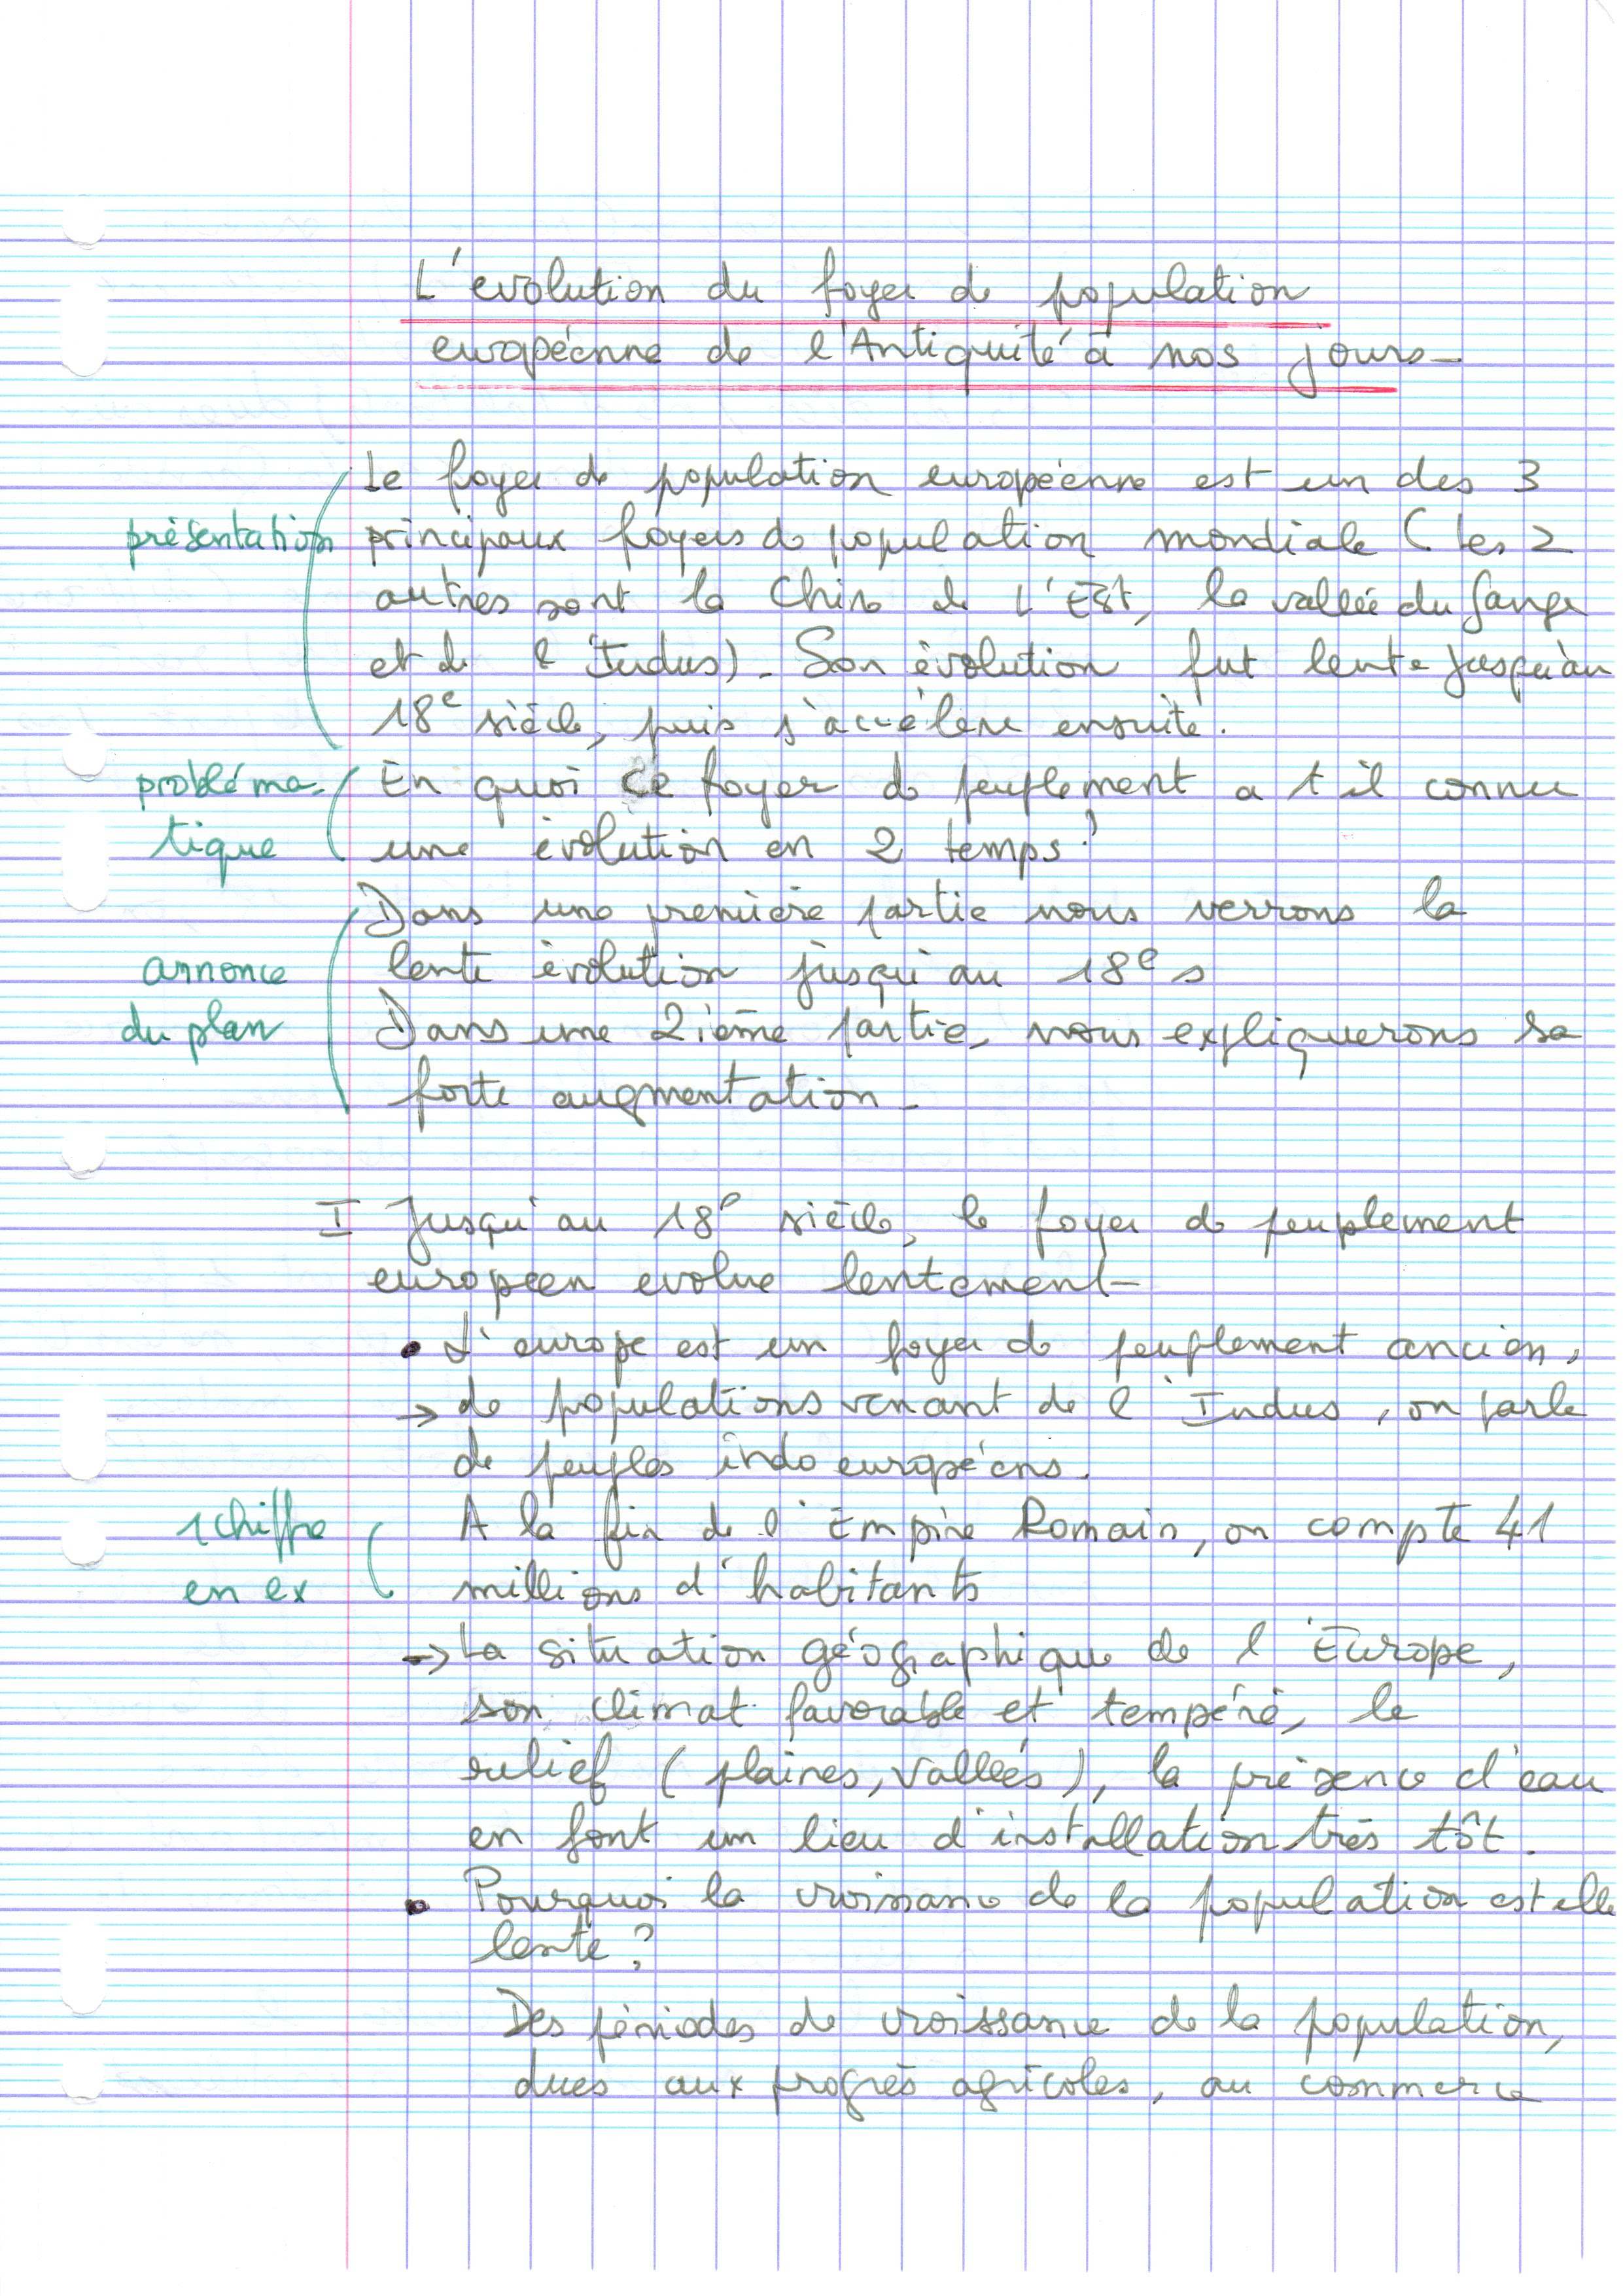 L'evolution du foyer de population
européenne de l'Antiquité à nos jours
Le foyer de population européenne est un des 3
présentation principaux foyers de population mondiale (les 2
autres sont la Chine de L'Est, la vallée du Gange
et de l'Indus). Son évolution fut lente jusqu'au
18e siècle, puis s'accélère ensuite.
probléma- En quoi ce foyer de peuplement a t il connu
tique une évolution en 2 temps?
Dans une première partie nous verrons la
annonce lente évolution jusqu'au 18e s
du plan Dans une 2ième partie, nous expliquerons sa
forte augmentation.
I Jusqu'au 18e siècle, le foyer de peuplement
européen evolue lentement
• L'europe est un foyer de peuplement ancien,
→ de populations venant de l'Indus, on parle
de peuples indo européens.
1 chiffre A la fin de l'Empire Romain, on compte 41
en ex millions d'habitants
→ La situation géographique de l'Europe,
son climat favorable et tempéré, le
relief (plaines, vallées), la présence d'eau
en font un lieu d'installation très tôt.
• Pourquoi la croissance de la population est elle
lente?
Des périodes de croissance de la population,
dues aux progrès agricoles, au commerce